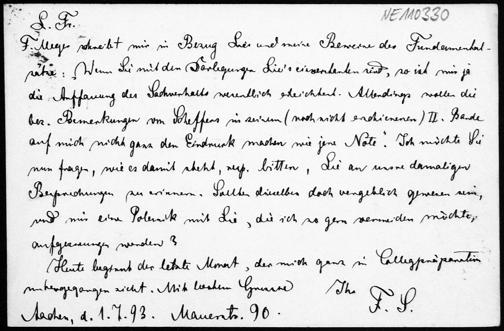 NE110330
L. Fr.
F. Meyer schreibt mir in Bezug Lies und meine Beweise des Fundamental-
sätze: „Wenn Sie mit den Darlegungen Lie's einverstanden sind, so ist mir ja
die Auffassung des Sachverhalts wesentlich erleichtert. Allerdings wollen die
bez. Bemerkungen von Scheffers in seinem (noch nicht erschienenen) II. Bande
auf mich nicht ganz den Eindruck machen wie jene Note". Ich möchte Sie
nun fragen, wie es damit steht, resp. bitten, Sie an unsre damaligen
Besprechungen zu erinnern. Sollten dieselben doch vergeblich gewesen sein,
und mir eine Polemik mit Lie, die ich so gern vermeiden möchte,
aufgezwungen werden?
Heute beginnt der letzte Monat, der mich ganz in Collegpräparation
aufgegangen sieht. Mit besten Grüssen Ihr
F. S.
Aachen, d. 1.7.93. Mauerstr. 90.